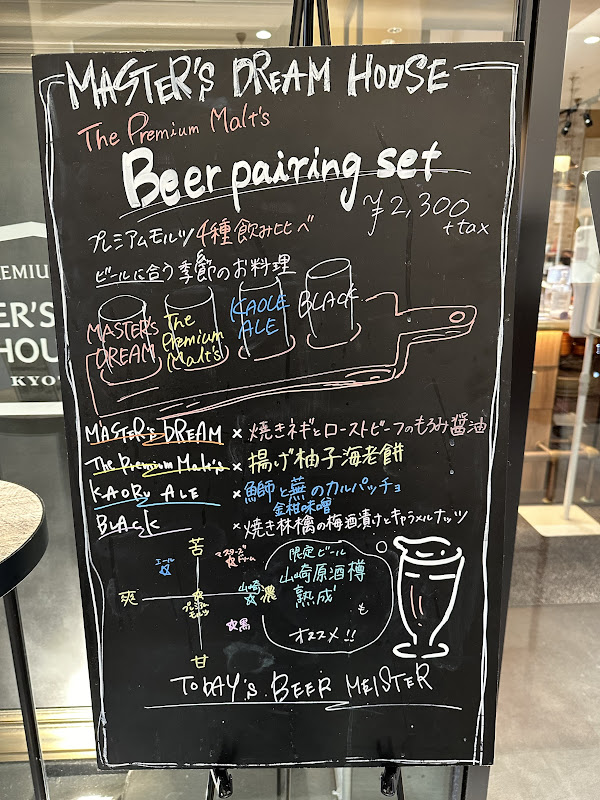 MASTER'S DREAM HOUSE
The Premium Malt's
Beer pairing set
¥2,300
+tax
プレミアムモルツ4種飲み比べ
ビールに合う季節のお料理
MASTER'S
DREAM
The
Premium
Malt's
KAOLE
ALE
BLACK
MASTER'S DREAM × 焼きネギとローストビーフのもろみ醤油
The Premium Malt's × 揚げ柚子海老餅
KAORU ALE × 鰤と蕪のカルパッチョ
金柑味噌
BLACK × 焼き林檎の梅酒漬けとキャラメルナッツ
苦
エール
マスターズ
ドリーム
爽
プレミアム
モルツ
山崎
濃
黒
甘
限定ビール
山崎原酒樽
熟成
も
オススメ!!
TODAY'S BEER MEISTER
PREMIU
ER'S
HOU
KYO